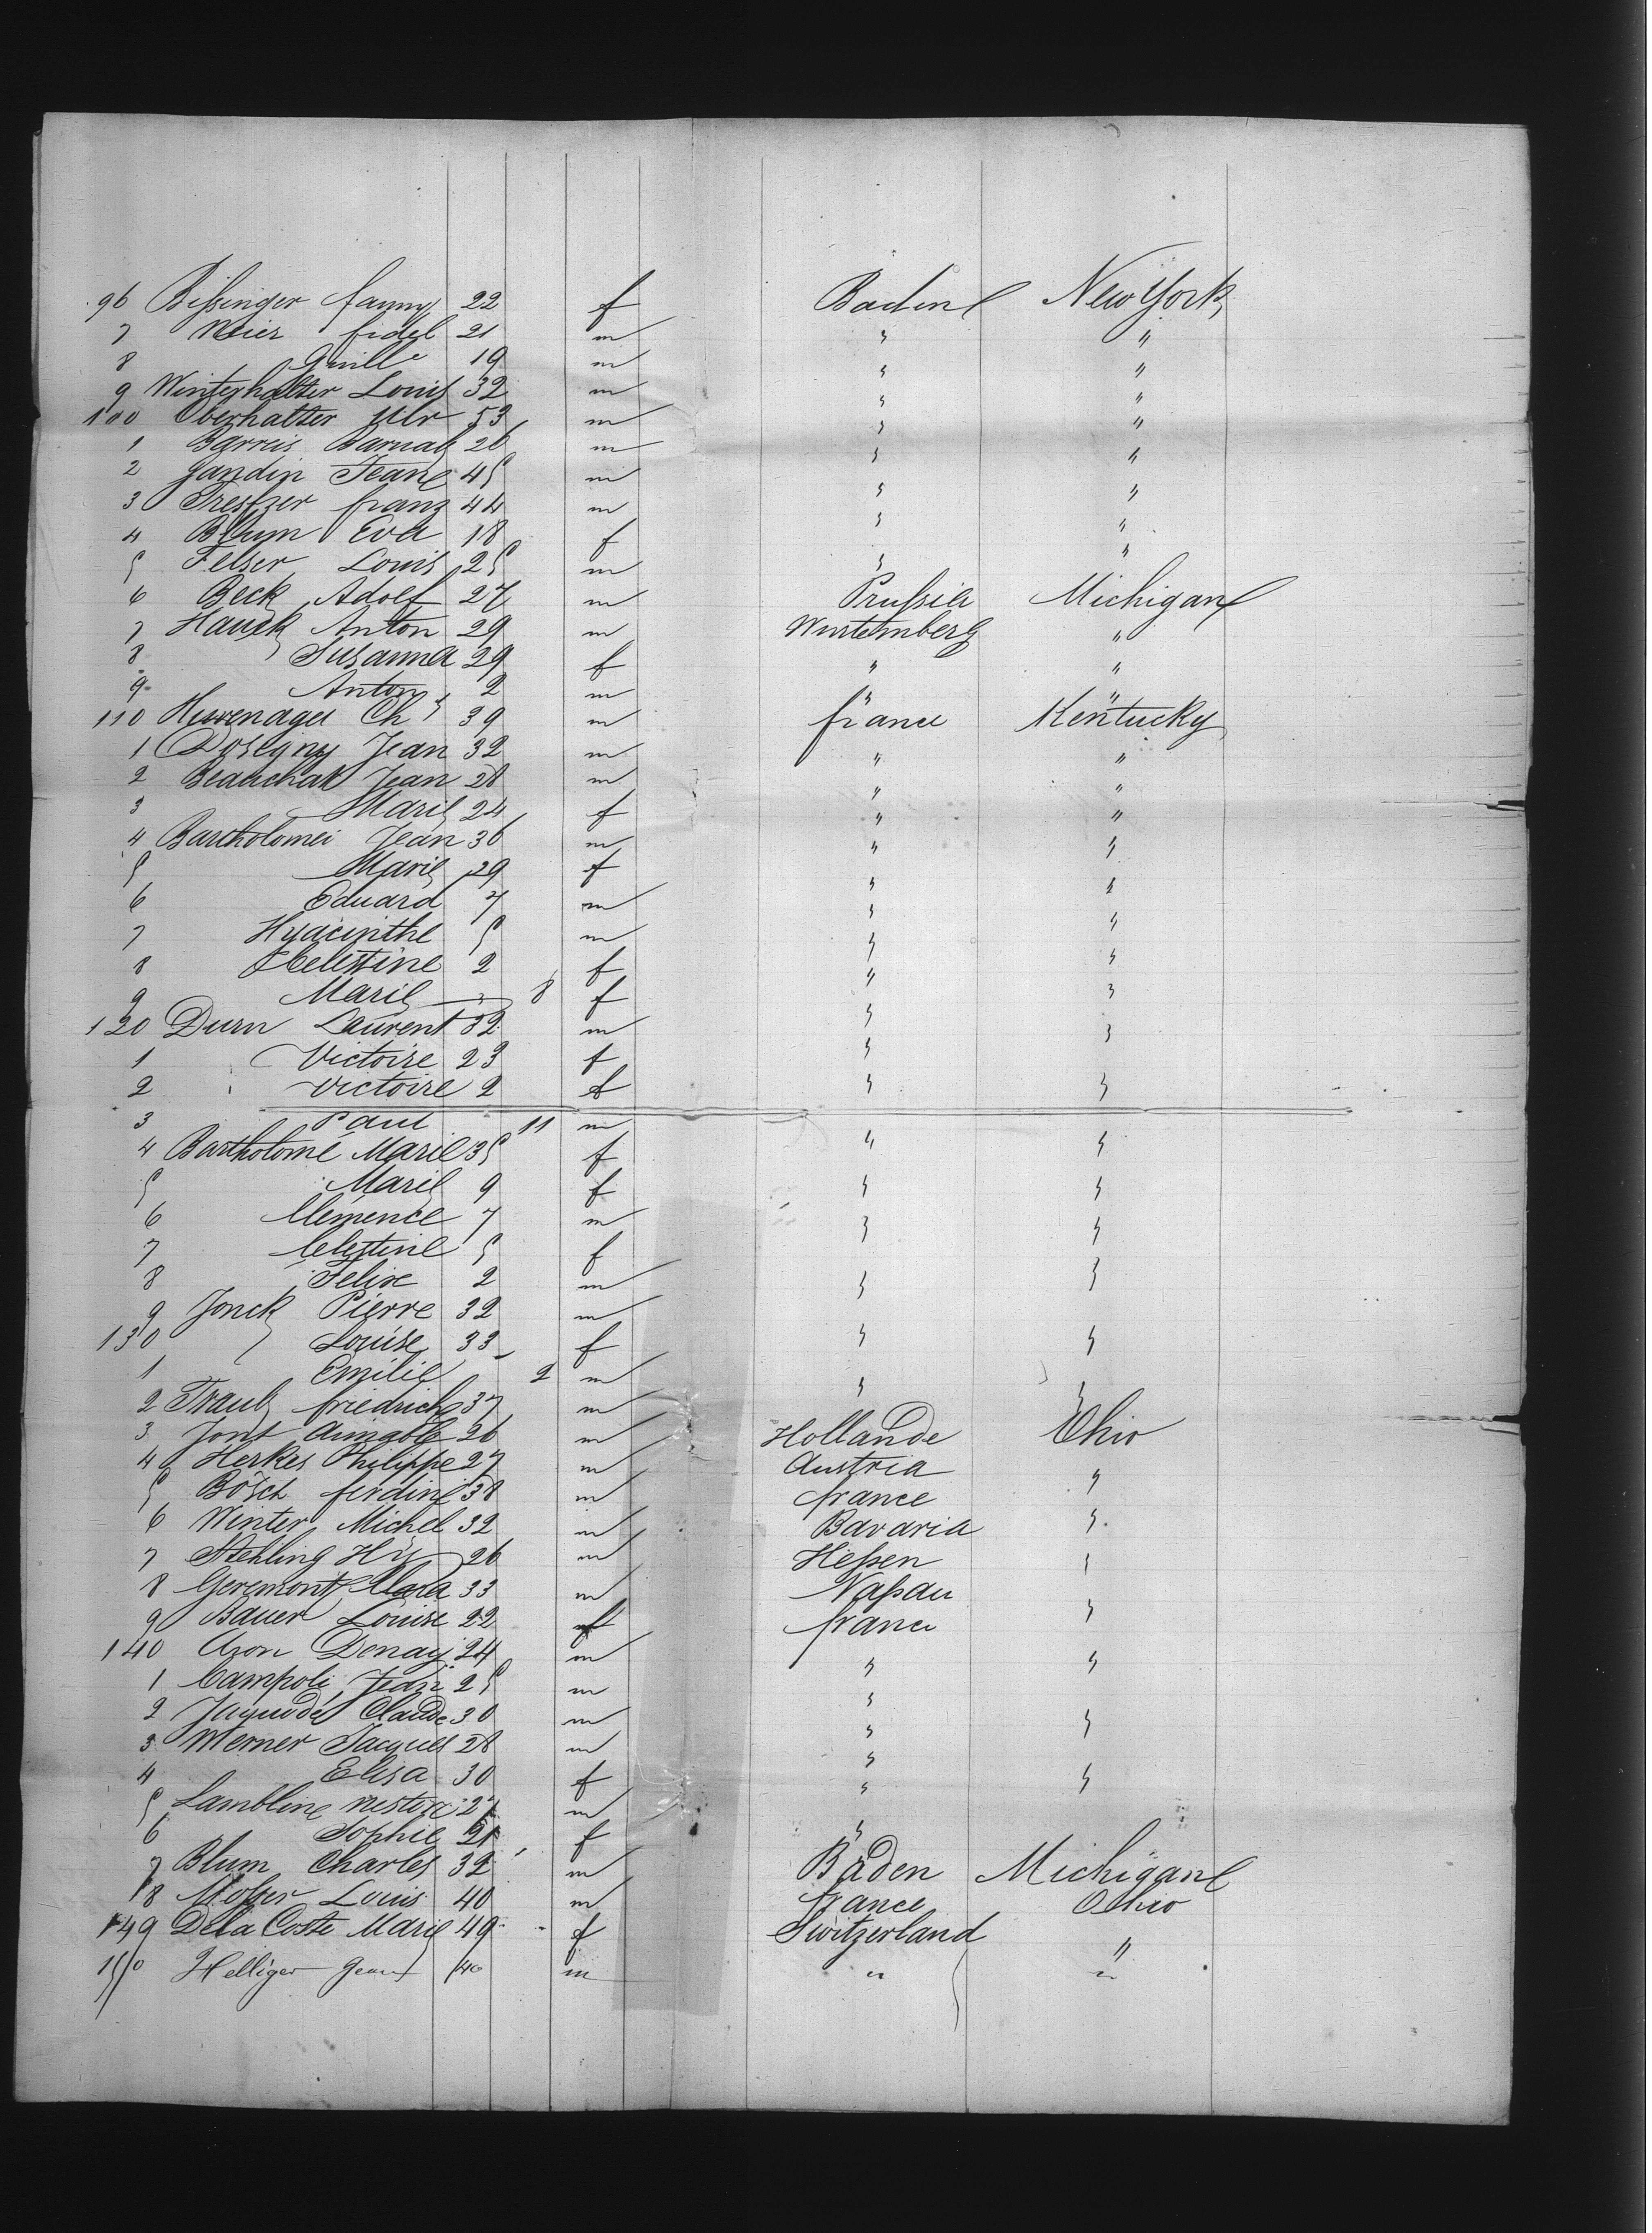 96 Bißinger fanny 22 f Baden New York
7 Meier fidel 21 m " "
8 Guille 19 m " "
9 Winterhalter Louis 32 m " "
100 Oberhalter Ulr 53 m " "
1 Barreis Barnab 26 m " "
2 Jandin Jean 45 m " "
3 Trestzer franz 44 m " "
4 Blum Eva 18 f " "
5 Felser Louis 25 m " "
6 Beck Adolf 27 m Prußia Michigan
7 Hauck Anton 29 m Wurtemberg "
8 Susanna 29 f " "
9 Anton 2 m " "
110 Ch 39 m france Kentucky
1 Dosegny Jean 32 m " "
2 Beauchat Jean 28 m " "
3 Marie 24 f " "
4 Bartholomei Jean 36 m " "
5 Marie 29 f " "
6 Eduard 7 m " "
7 Hyacinthe 5 m " "
8 Celestine 2 f " "
9 Marie 8 f " "
120 Durn Laurent 32 m " "
1 Victoire 23 f "
2 Victoire 2 f " "
3 Paul 11 m
4 Bartholomé Marie 35 f " "
5 Marie 9 f " "
6 Clémence 7 m " "
7 Celestine 5 f
8 Felix 2 m " "
9 Jonck Pierre 32 m
130 Louise 33 f " "
1 Emilie 2 m " "
2 Traub friedrich 37 m "
3 Jont Aimable 26 m Hollande Ohio
4 Herkes Philippe 27 m Austria
5 Bösch ferdine 38 m france "
6 Winter Michel 32 m Bavaria "
7 Stehling 26 m Heßen "
8 Geremont Clara 33 m Naßau
9 Bauer Louise 22 f france "
140 Aron Denay 24 m " "
1 Campoli Jean 25 m "
2 Claude 30 m " "
3 Werner Jacques 28 m "
4 Elisa 30 f " "
5 Lambline nestor 27 m
6 Sophie 21 f "
7 Blum Charles 32 m Baden Michigan
18 Moßer Louis 40 m france Ohio
149 De la Coste Marie 49 f Switzerland "
150 Helliger Jean 40 m " "